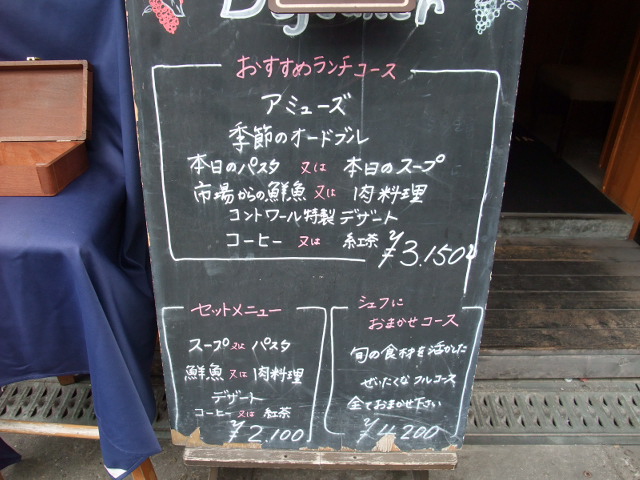 おすすめランチコース
アミューズ
季節のオードブル
本日のパスタ 又は 本日のスープ
市場からの鮮魚 又は 肉料理
コントワール特製デザート
コーヒー 又は 紅茶
¥3.150
セットメニュー
スープ又はパスタ
鮮魚又は肉料理
デザート
コーヒー又は紅茶
¥2.100
シェフに
おまかせコース
旬の食材を活かした
ぜいたくなフルコース
全ておまかせ下さい
¥4.200